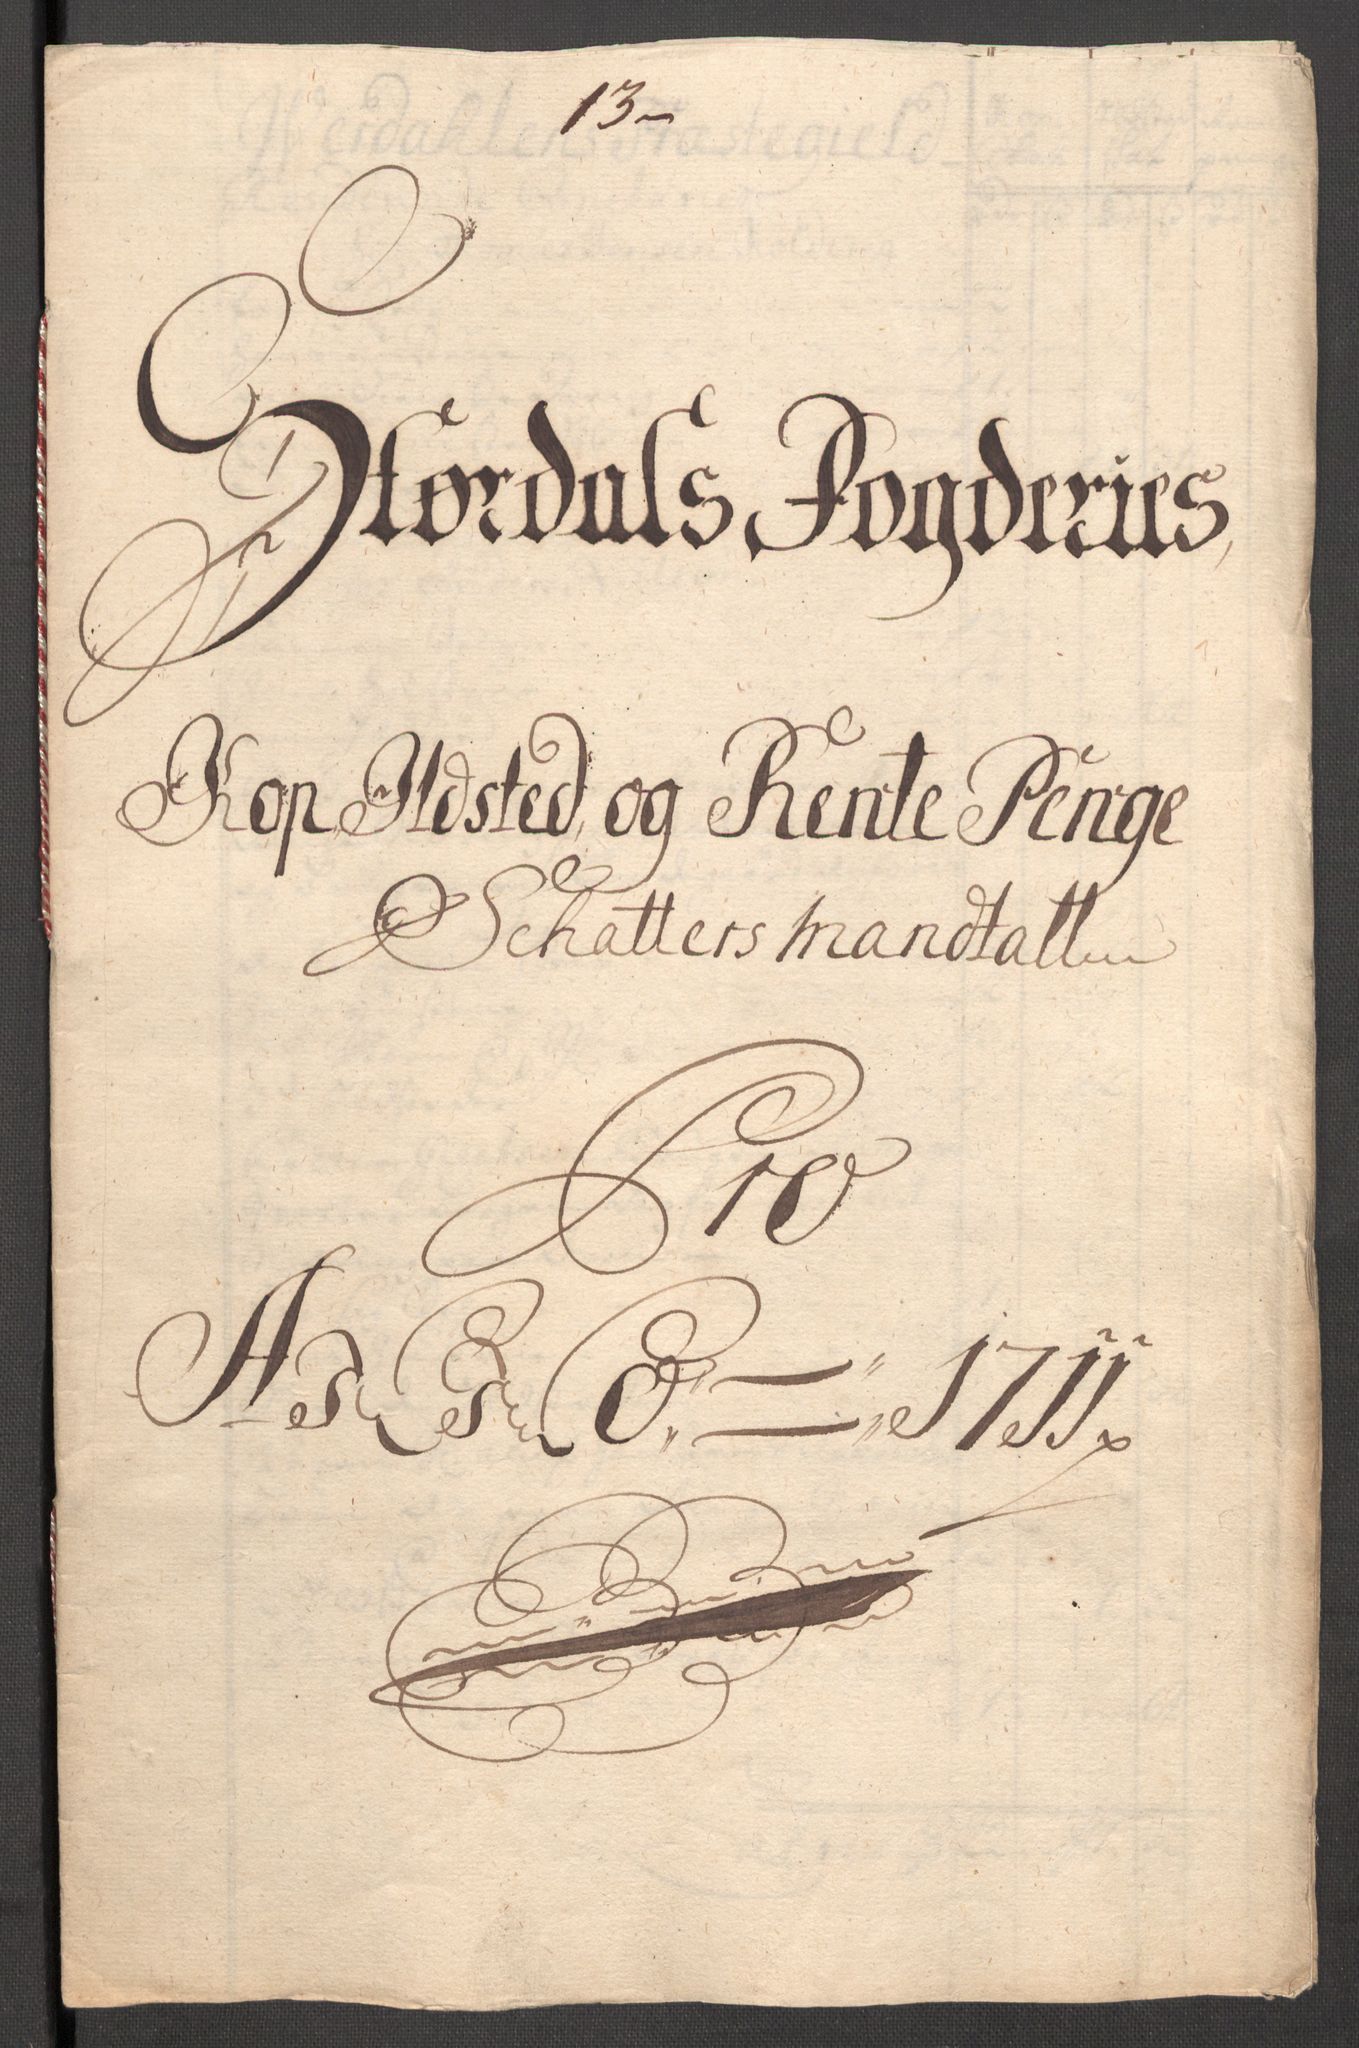 13
Størdals Fogderies
Kop, Ildsted, og Rente Penge
Schatters Mandtall
Pro
1711